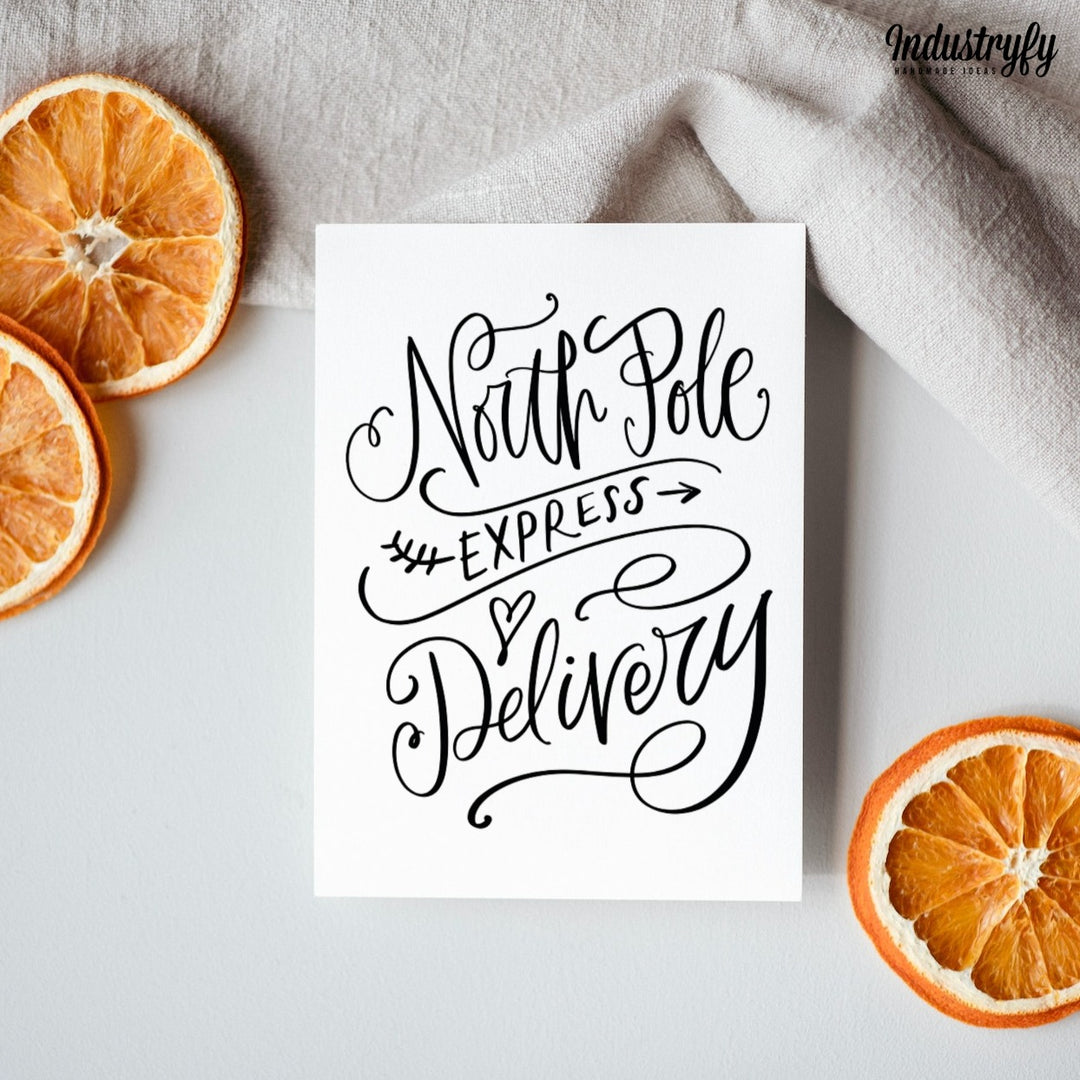 Industryfy
HANDMADE IDEAS
North Pole
EXPRESS
Delivery